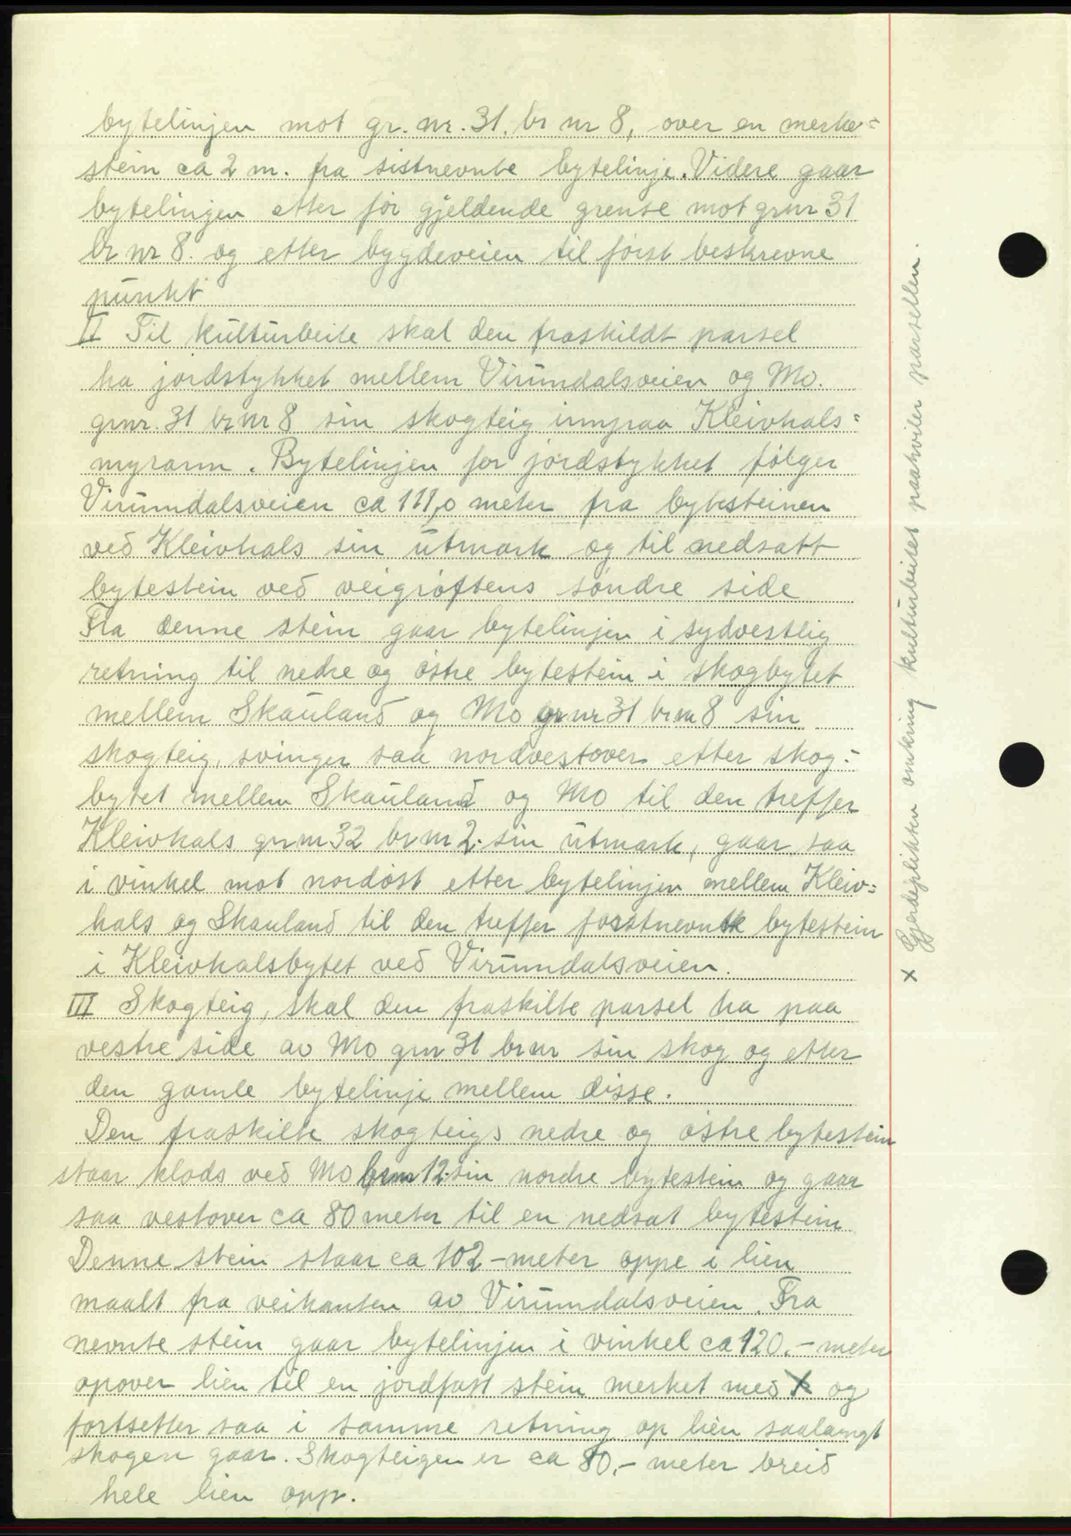 bytelinjen mot gr. nr. 31, br nr 8, over en merke=
stein ca 2 m. fra sistnevnte bytelinje. Videre gaar
bytelinjen etter før gjeldende grense mot grnr 31
br nr 8. og etter bygdeveien til først beskrevne
punkt
II Til kulturbeite skal den fraskildt parsel
ha jordstykket mellem Virumdalsveien og Mo.
grnr. 31 br nr 8 sin skogteig innpaa Kleivhals=
myrann. Bytelinjen for jordstykket følger
Virumdalsveien ca 111,0 meter fra byksteinen
ved Kleivhals sin utmark og til nedsatt
bytestein ved veigrøftens søndre side
Fra denne stein gaar bytelinjen i sydvestlig
retning til nedre og østre bytestein i skogbytet
mellem Skauland og Mo grnr 31 br nr 8 sin
skogteig, svinger saa nordvestover etter skog=
bytet mellem Skauland og Mo til den treffer
Kleivhals grnr 32 br nr 2. sin utmark, gaar saa
i vinkel mot nordøst etter bytelinjen mellem Kleiv=
hals og Skauland til den treffer førstnevnte bytestein
i Kleivhalsbytet ved Virumdalsveien.
III Skogteig, skal den fraskilte parsel ha paa
vestre side av Mo grnr 31 br nr sin skog og etter
den gamle bytelinje mellem disse.
Den fraskilte skogteigs nedre og østre bytestein
staar klods ved Mo brnr 12. sin nordre bytestein og gaar
saa vestover ca 80 meter til en nedsat bytestein
Denne stein staar ca 102 - meter oppe i lien
maalt fra veikanten av Virumdalsveien. Fra
nevnte stein gaar bytelinjen i vinkel ca 120. - meter
opover lien til en jordfast stein merket med X og
fortsetter saa i samme retning op lien saalangt
skogen gaar. Skogteigen er ca 80,- meter breid
hele lien opp.
x Gjerdeplikten omkring kulturbeitet paahviler parsellen.